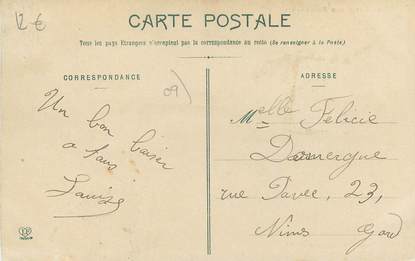 12 €
CARTE POSTALE
Tous les pays Etrangers n'acceptent pas la correspondance au recto (Se renseigner à la Poste)
CORRESPONDANCE
ADRESSE
09)
Un bon baiser
a tous
Louise
Melle Félicie
Domergue
rue Pavée, 23,
Nimes Gard